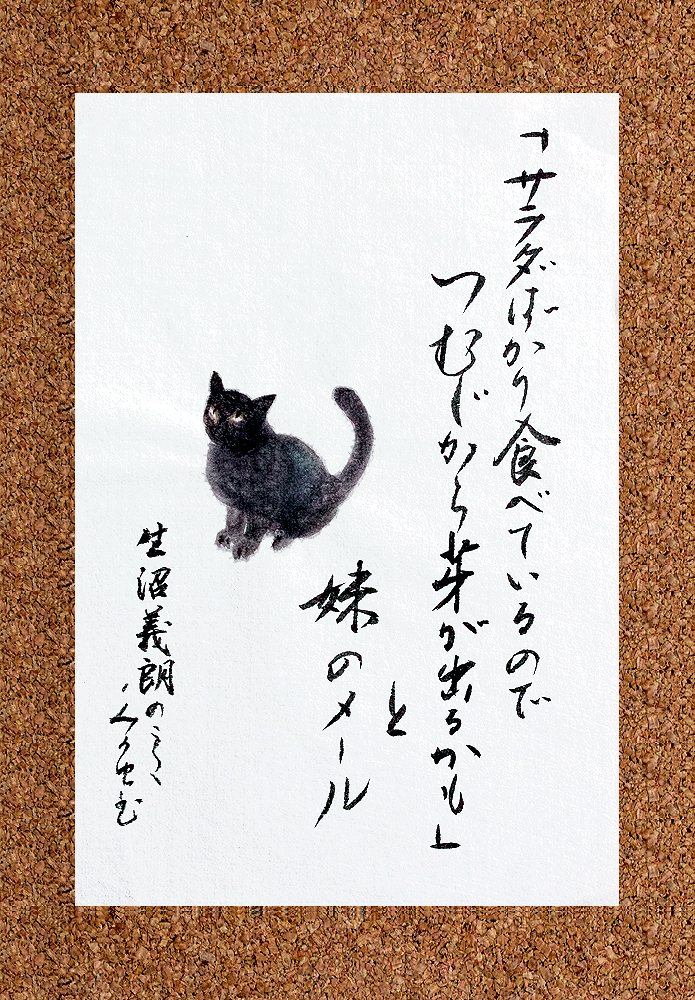 「サラダばかり食べているので
つむじから芽が出るかも」
と
妹のメール
生沼義朗の